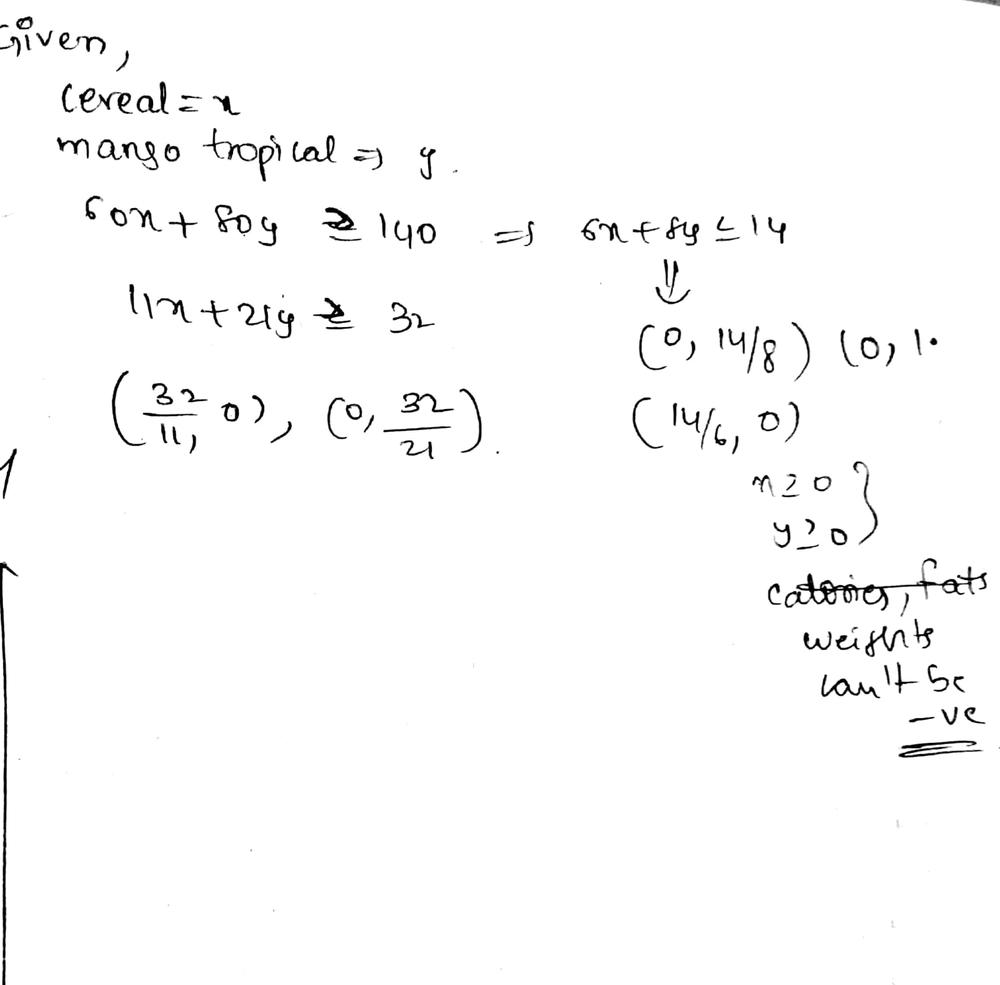 Given,
cereal = x
mango tropical => y.
60x + 80y ≥ 140 => 6x + 8y ≤ 14
⇓
11x + 21y ≥ 32
(0, 14/8) (0, 1.
(32/11, 0), (0, 32/21).
(14/6, 0)
x ≥ 0 }
y ≥ 0
calories, fats
weights
can't be
-ve